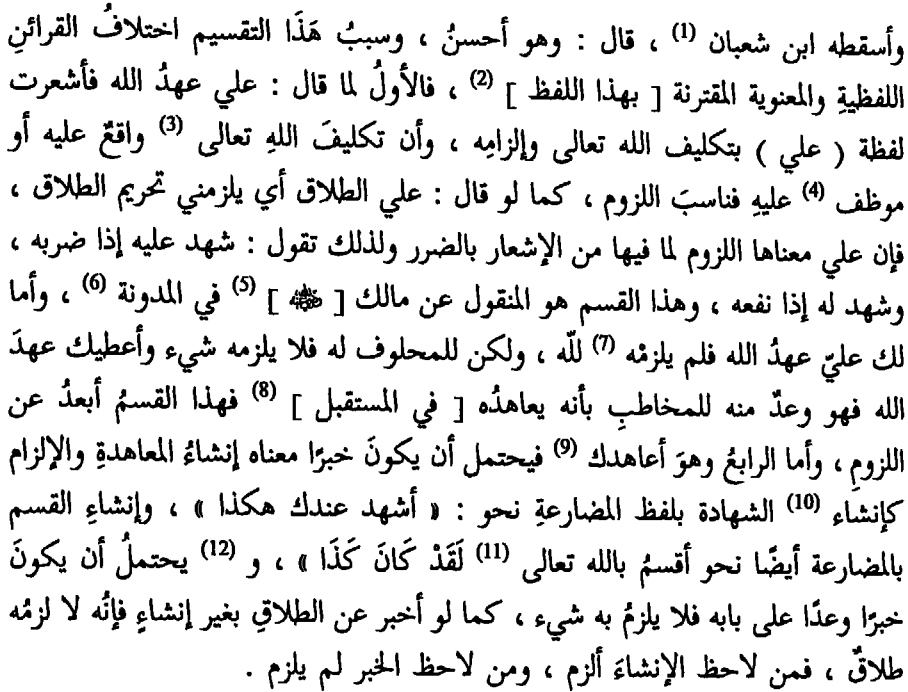 وأسقطه ابن شعبان (1) ، قال : وهو أحسنُ ، وسببُ هَذَا التقسيم اختلافُ القرائنِ
اللفظيةِ والمعنوية المقترنة [ بهذا اللفظ ] (2) ، فالأولُ لما قال : علي عهدُ الله فأشعرت
لفظة ( علي ) بتكليف الله تعالى وإلزامِه ، وأن تكليفَ اللهِ تعالى (3) واقعٌ عليه أو
موظف (4) عليهِ فناسبَ اللزوم ، كما لو قال : علي الطلاق أي يلزمني تحريم الطلاق ،
فإن علي معناها اللزوم لما فيها من الإشعار بالضرر ولذلك تقول : شهد عليه إذا ضربه ،
وشهد له إذا نفعه ، وهذا القسم هو المنقول عن مالك [ ﷺ ] (5) في المدونة (6) ، وأما
لك عليّ عهدُ الله فلم يلزمْه (7) للّه ، ولكن للمحلوف له فلا يلزمه شيء وأعطيك عهدَ
الله فهو وعدٌ منه للمخاطبِ بأنه يعاهدُه [ في المستقبل ] (8) فهذا القسمُ أبعدُ عن
اللزومِ ، وأما الرابعُ وهوَ أعاهدك (9) فيحتمل أن يكونَ خبرًا معناه إنشاءُ المعاهدةِ والإلزام
كإنشاء (10) الشهادة بلفظ المضارعةِ نحو : « أشهد عندك هكذا » ، وإنشاءِ القسم
بالمضارعة أيضًا نحو أقسمُ بالله تعالى (11) لَقَدْ كَانَ كَذَا » ، و (12) يحتملُ أن يكونَ
خبرًا وعدًا على بابه فلا يلزمُ به شيء ، كما لو أخبر عن الطلاقِ بغير إنشاءٍ فإنَّه لا لزمُه
طلاقٌ ، فمن لاحظ الإنشاءَ ألزم ، ومن لاحظ الخبر لم يلزم .